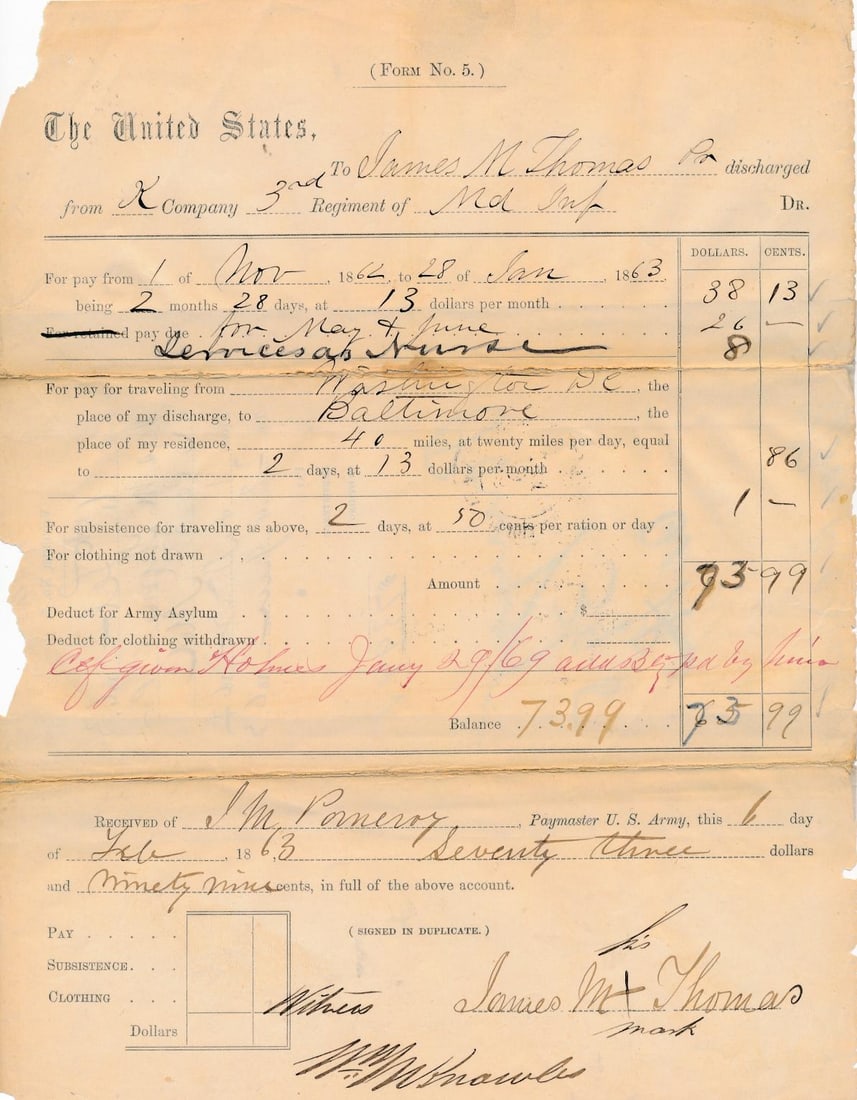 (FORM NO. 5.)
The United States,
To James M Thomas Pr discharged
from K Company 3rd Regiment of Md Inf DR.
DOLLARS. CENTS.
For pay from 1 of Nov, 1862, to 28 of Jan, 1863,
being 2 months 28 days, at 13 dollars per month 38 13
For retained pay due for May & June 26 —
Services as Nurse 8
For pay for traveling from Washington DC, the
place of my discharge, to Baltimore, the
place of my residence, 40 miles, at twenty miles per day, equal
to 2 days, at 13 dollars per month 86
For subsistence for traveling as above, 2 days, at 50 cents per ration or day 1 —
For clothing not drawn
Amount 73 99
Deduct for Army Asylum $
Deduct for clothing withdrawn
given Holmes Jany 29/69 pd by him
Balance 73.99 73 99
RECEIVED of J M Pomeroy, Paymaster U. S. Army, this 6 day
of Feb, 1863 Seventy three dollars
and Ninety nine cents, in full of the above account.
PAY
(SIGNED IN DUPLICATE.)
SUBSISTENCE
his
CLOTHING
Witness James M X Thomas
mark
Dollars
Wm M Knowles